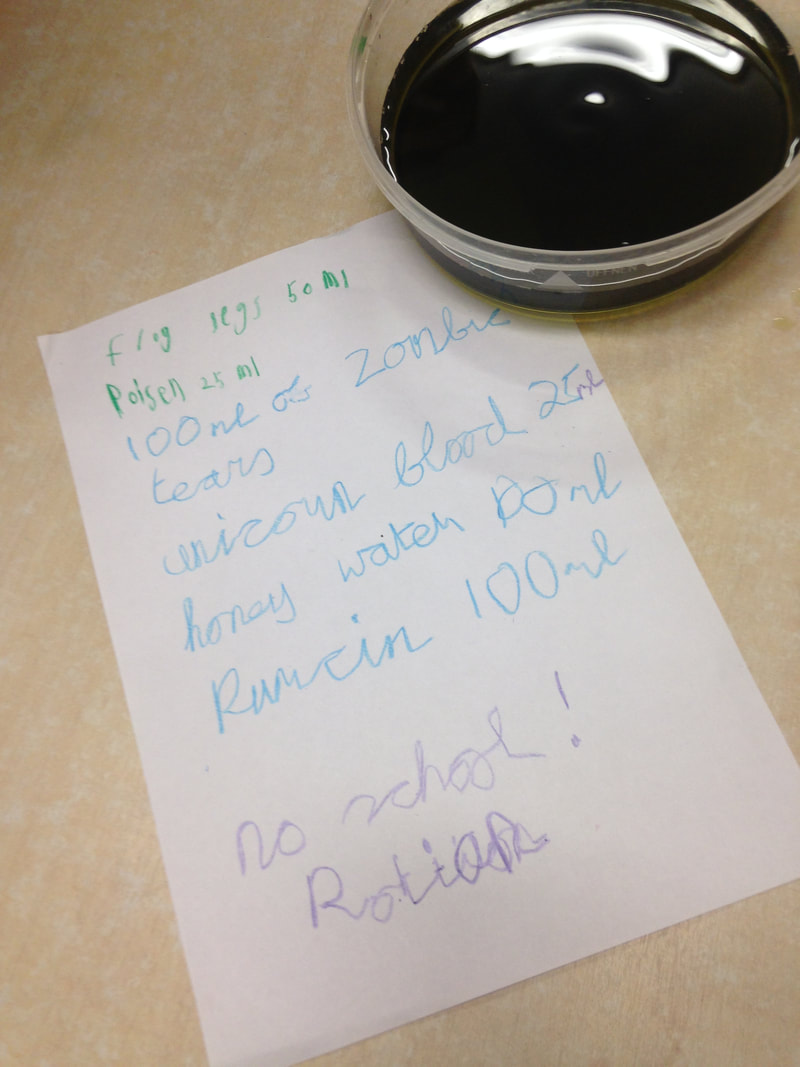 ÖFFNEN
Frog legs 50 ml
Poisen 25 ml
100ml of zombie
tears
unicorn blood 25ml
honey water ml
Pumcin 100ml
no school!
Potion